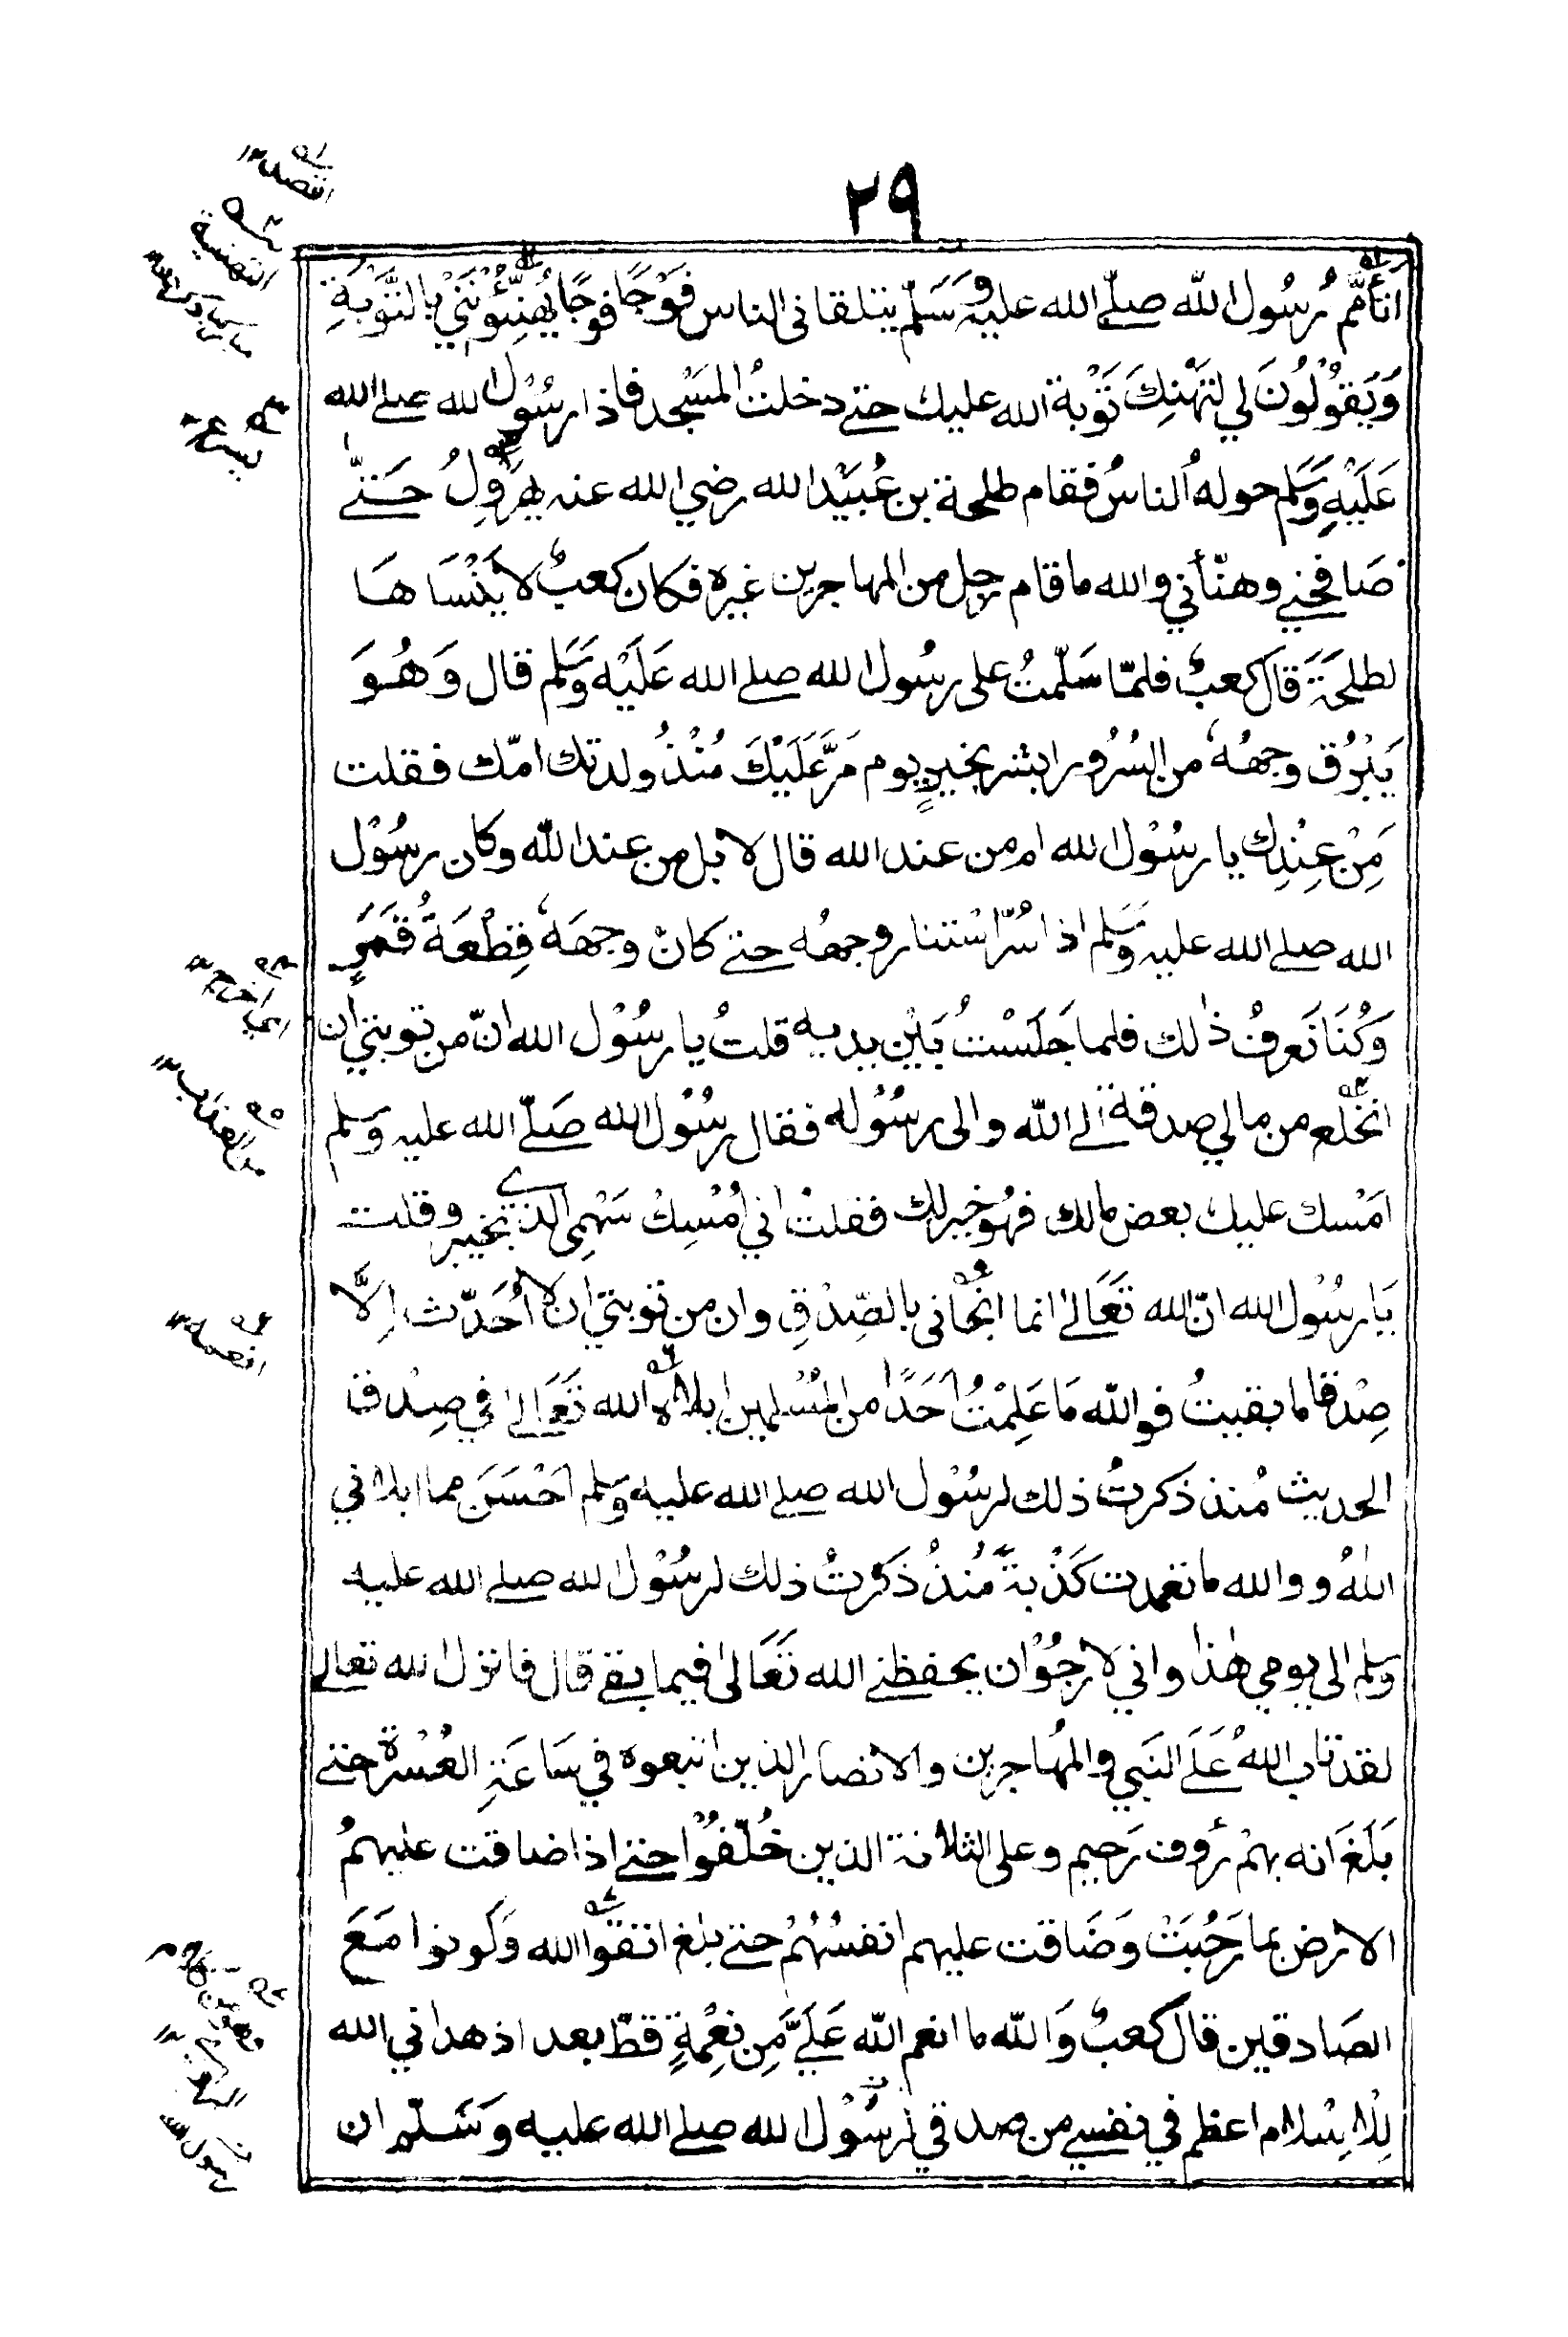 ٢٩
اَتَأَمَّمُ رسُول الله صلّے الله عليہ وَسَلّم يتلقانى الناس فَوْجًا فوجًا يُهَنِّئُوْنَنِيْ بالتَّوْبَةِ
وَيَقُوْلُونَ لي لتَهْنِكَ تَوْبة الله عليك حتے دخلتُ المَسْجد فاذا رسُوْل الله صلے الله
عَلَيْهِ وَسَلم حولهُ الناسُ فقام طلحة بن عُبَيْد الله رضي الله عنہ يهروِلُ حَتّے
صَافحنے وهنّأني والله ما قام رجل من المهاجرين غيره فكان كعبٌ لا يَنْسَاهَا
لطلحَۃَ قال كعبٌ فلمّا سَلّمتُ على رسُول الله صلے الله عَلَيْه وَسَلم قال وَهُوَ
يَبْرُق وجهُهٗ من السُرُور ابشر بخيرِ يوم مَرَّ عَلَيْكَ مُنْذُ ولدتك امّك فقلت
مِنْ عِنْدِك يا رسُوْل الله ام من عند الله قال لا بل من عند الله وكان رسُوْل
الله صلے الله عليہ وَسَلم اذا سُرّ اسْتنار وجهُه حتے كانْ وجهَهٗ قِطْعَةُ قَمَرٍ
وَكُنَا نَعرفُ ذٰلك فلما جَلَسْتُ بَيْن يديه قلتُ يا رسُوْل الله انّ من توبتيَ ان
انخلع من مالي صدقة الے الله والى رسُوْله فقال رسُوْل الله صَلّے الله عليہ وسلم
امْسك عليك بعض مالك فهُو خيرلك فقلتْ اني اُمْسِكُ سَهْمِى الذي بخيبر وقلت
يَا رسُوْل الله انّ الله تَعَالىٰ انما انجَانى بالصِّدْقِ وان من توبتيَ ان لا اُحَدّث اِلَّا
صِدْقا ما بقيتُ فو الله مَا عَلِمْتُ اَحَدًا من المُسْلمين ابلاه الله تَعَالىٰ في صِدْق
الحديث مُنذ ذكرتُ ذلك لرسُوْل الله صلے الله عليه وسلم اَحْسَنَ مما ابلاني
اللهُ ووالله ما تعمدت كَذْبةً مُنْذُ ذَكرتُ ذلك لرسُوْل الله صلے الله عليه
وسلم الى يومي هٰذا واني لارجُوْ ان يحفظنے الله تَعَالىٰ فيما بقے قال فانزل الله تعالے
لقد تاب اللهُ عَلَے النَبي والمُهاجرين والانصار الذين اتبعوه في سَاعَۃِ العُسْرۃ حتے
بَلَغَ انه بهمْ رؤوف رَحيم وعلى الثلاثة الذين خُلّفُوْا حتے اذا ضاقت عليهمُ
الارض بما رَحُبَتْ وَضَاقت عليهم انفسُهُمْ حتے بلغ اتقوا الله وَكونوا مَعَ
الصَادقين قال كعبٌ وَالله ما انعم الله عَلَيَّ مِن نِعْمةٍ قطّ بعد اذ هداني الله
لِلْاِسْلام اعظم في نفسے من صدقي لرَسُوْل الله صلے الله عليه وَسَلّم ان
اقصد ١٢
التهنية
يسرع ١٢
اى اخرج ١٢
من العذاب ١٢
انعم ١٢